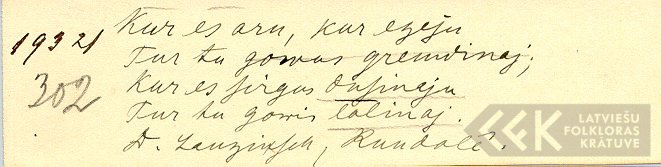 19321
302
Kur es aru, kur ezeju
Tur tu gowus gremdinaj;
Kur es sirgus dusinaju
Tur tu gowis lolinaj.
D. Lauzinsch, Rundalē.
LATVIEŠU
FOLKLORAS
KRĀTUVE